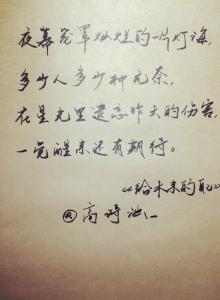 夜幕笼罩灿烂的一片灯海，
多少人多少种无奈，
在星光里遗忘昨天的伤害，
一觉醒来还有期待。
《给未来的自己》
@高诗